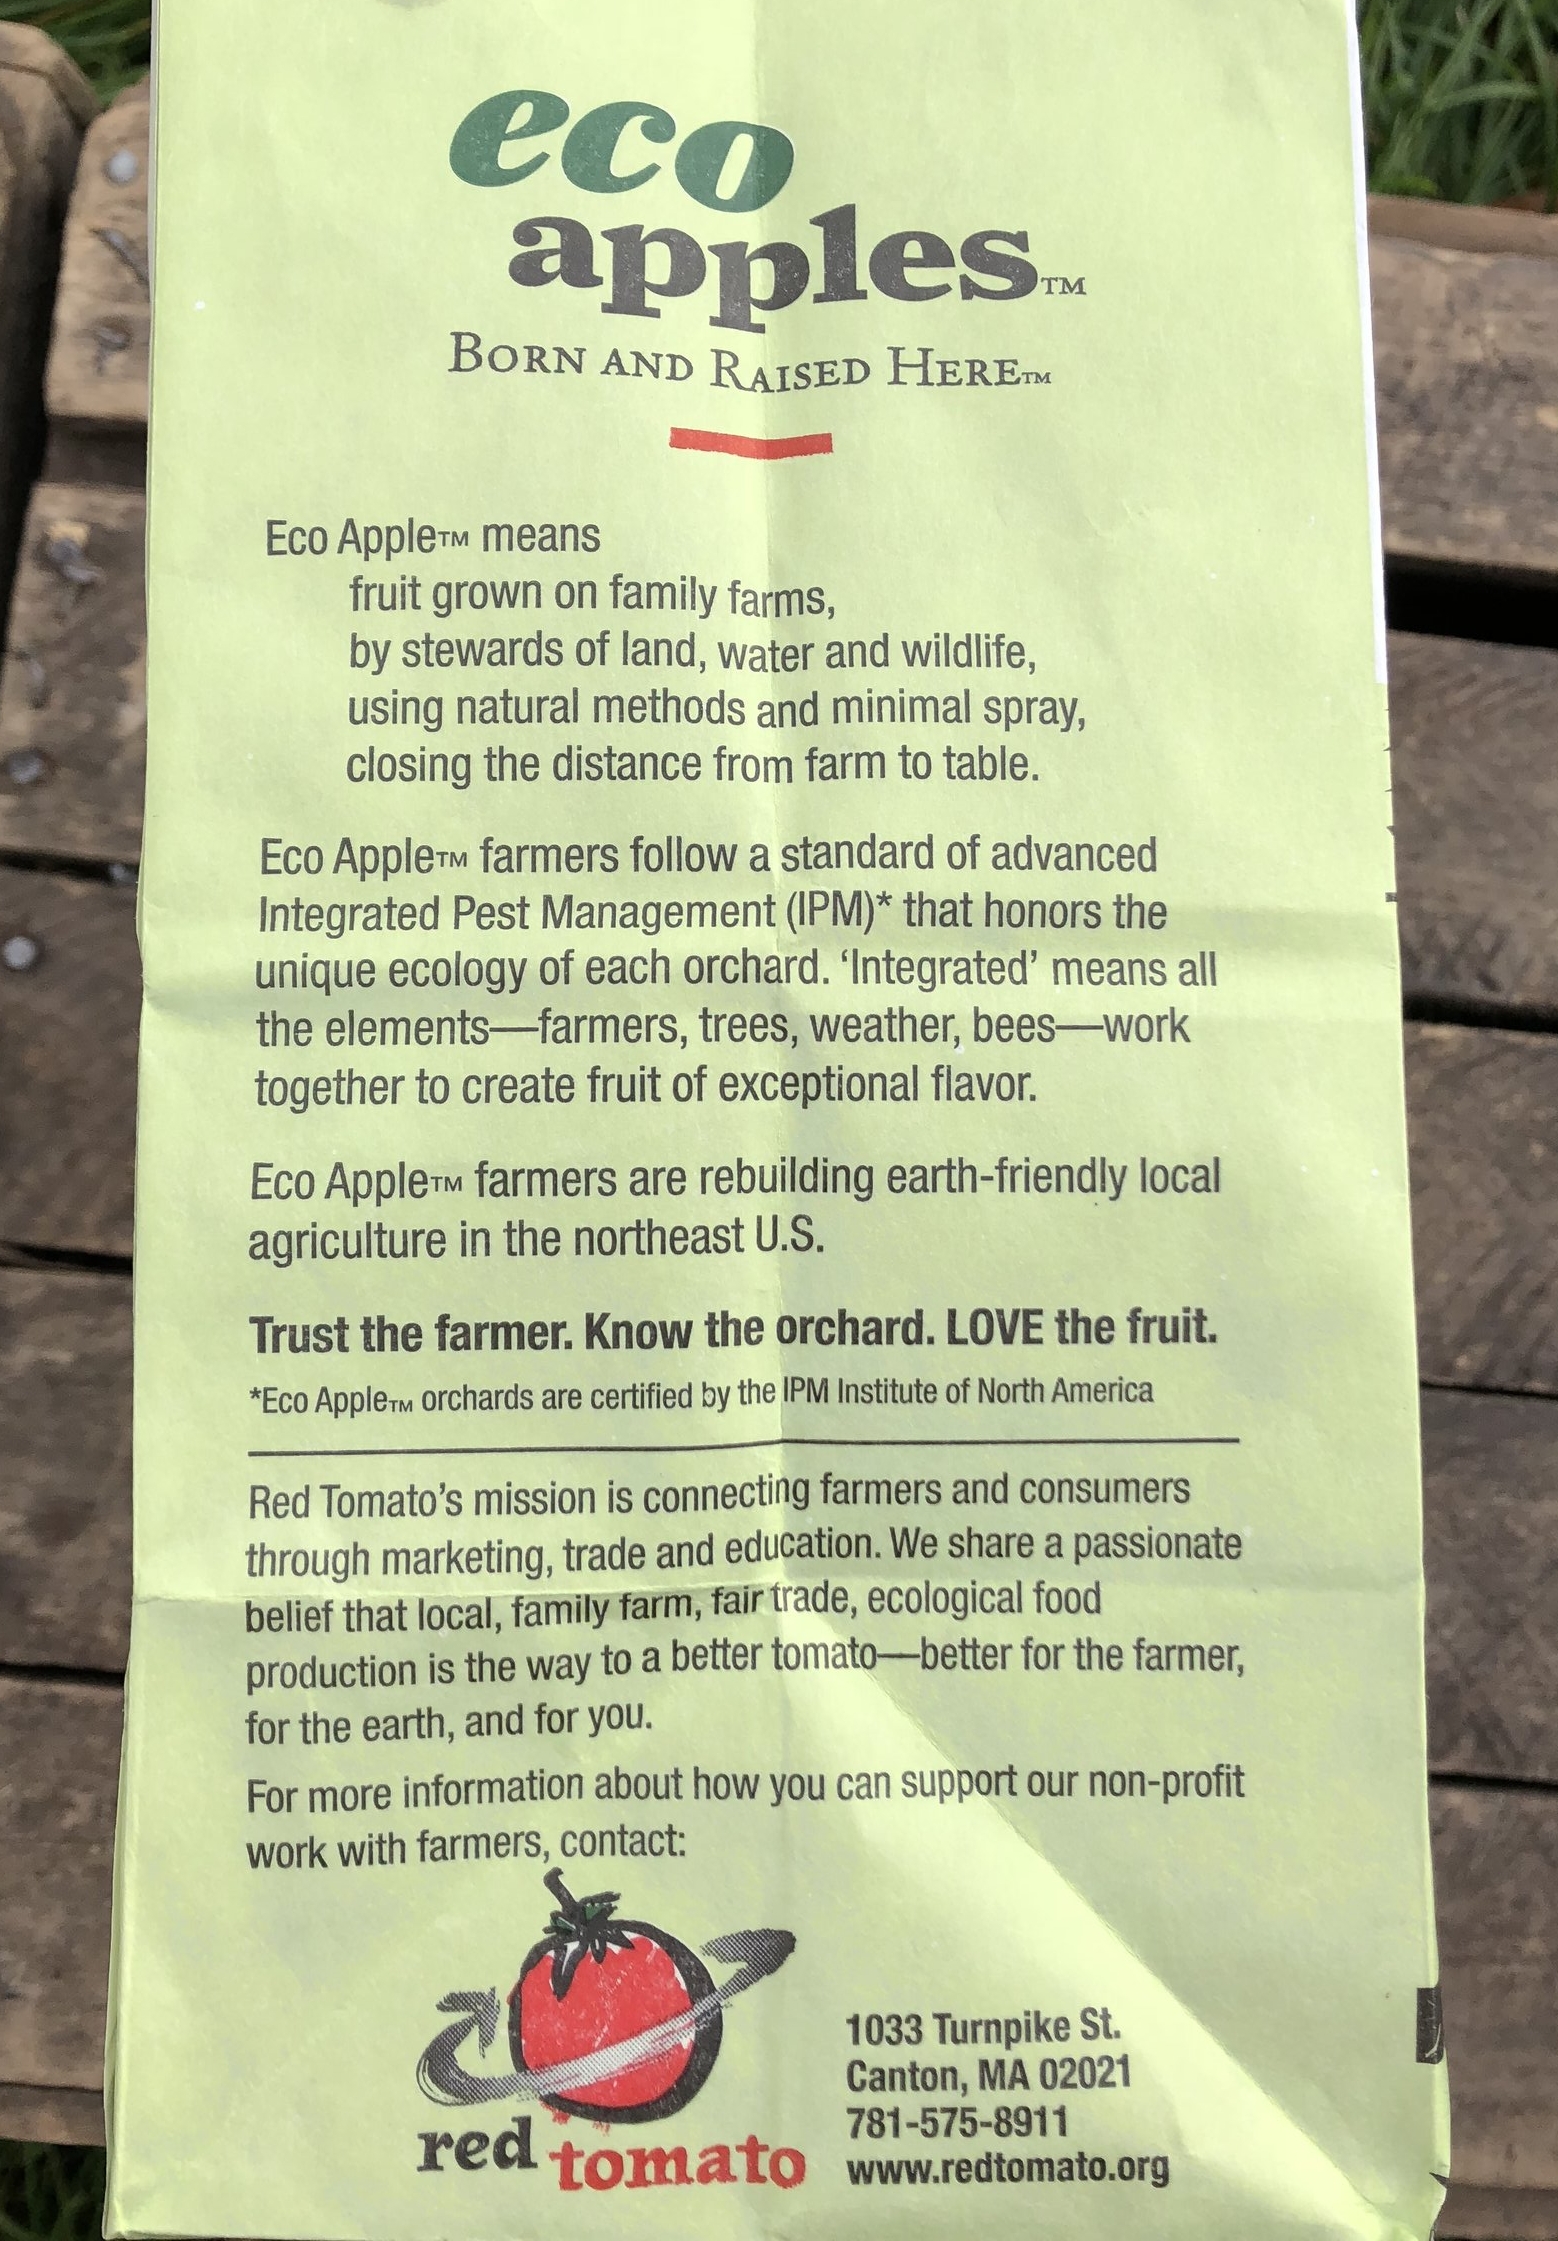 eco
apples™
BORN AND RAISED HERE™
Eco Apple™ means
fruit grown on family farms,
by stewards of land, water and wildlife,
using natural methods and minimal spray,
closing the distance from farm to table.
Eco Apple™ farmers follow a standard of advanced
Integrated Pest Management (IPM)* that honors the
unique ecology of each orchard. ‘Integrated’ means all
the elements—farmers, trees, weather, bees—work
together to create fruit of exceptional flavor.
Eco Apple™ farmers are rebuilding earth-friendly local
agriculture in the northeast U.S.
Trust the farmer. Know the orchard. LOVE the fruit.
*Eco Apple™ orchards are certified by the IPM Institute of North America
Red Tomato’s mission is connecting farmers and consumers
through marketing, trade and education. We share a passionate
belief that local, family farm, fair trade, ecological food
production is the way to a better tomato—better for the farmer,
for the earth, and for you.
For more information about how you can support our non-profit
work with farmers, contact:
red tomato
1033 Turnpike St.
Canton, MA 02021
781-575-8911
www.redtomato.org